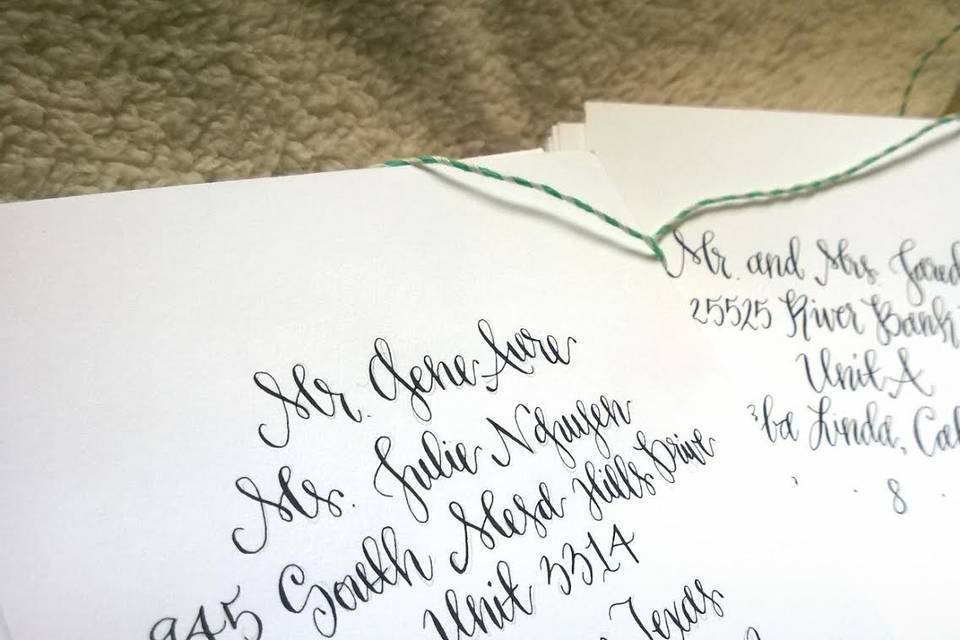 Mr. Gene Aure
Ms. Julie Nguyen
945 South Mesa Hills Drive
Unit 3314
Texas
Mr. and Mrs. Jared
25525 River Bank
Unit A
ba Linda, Cal
8